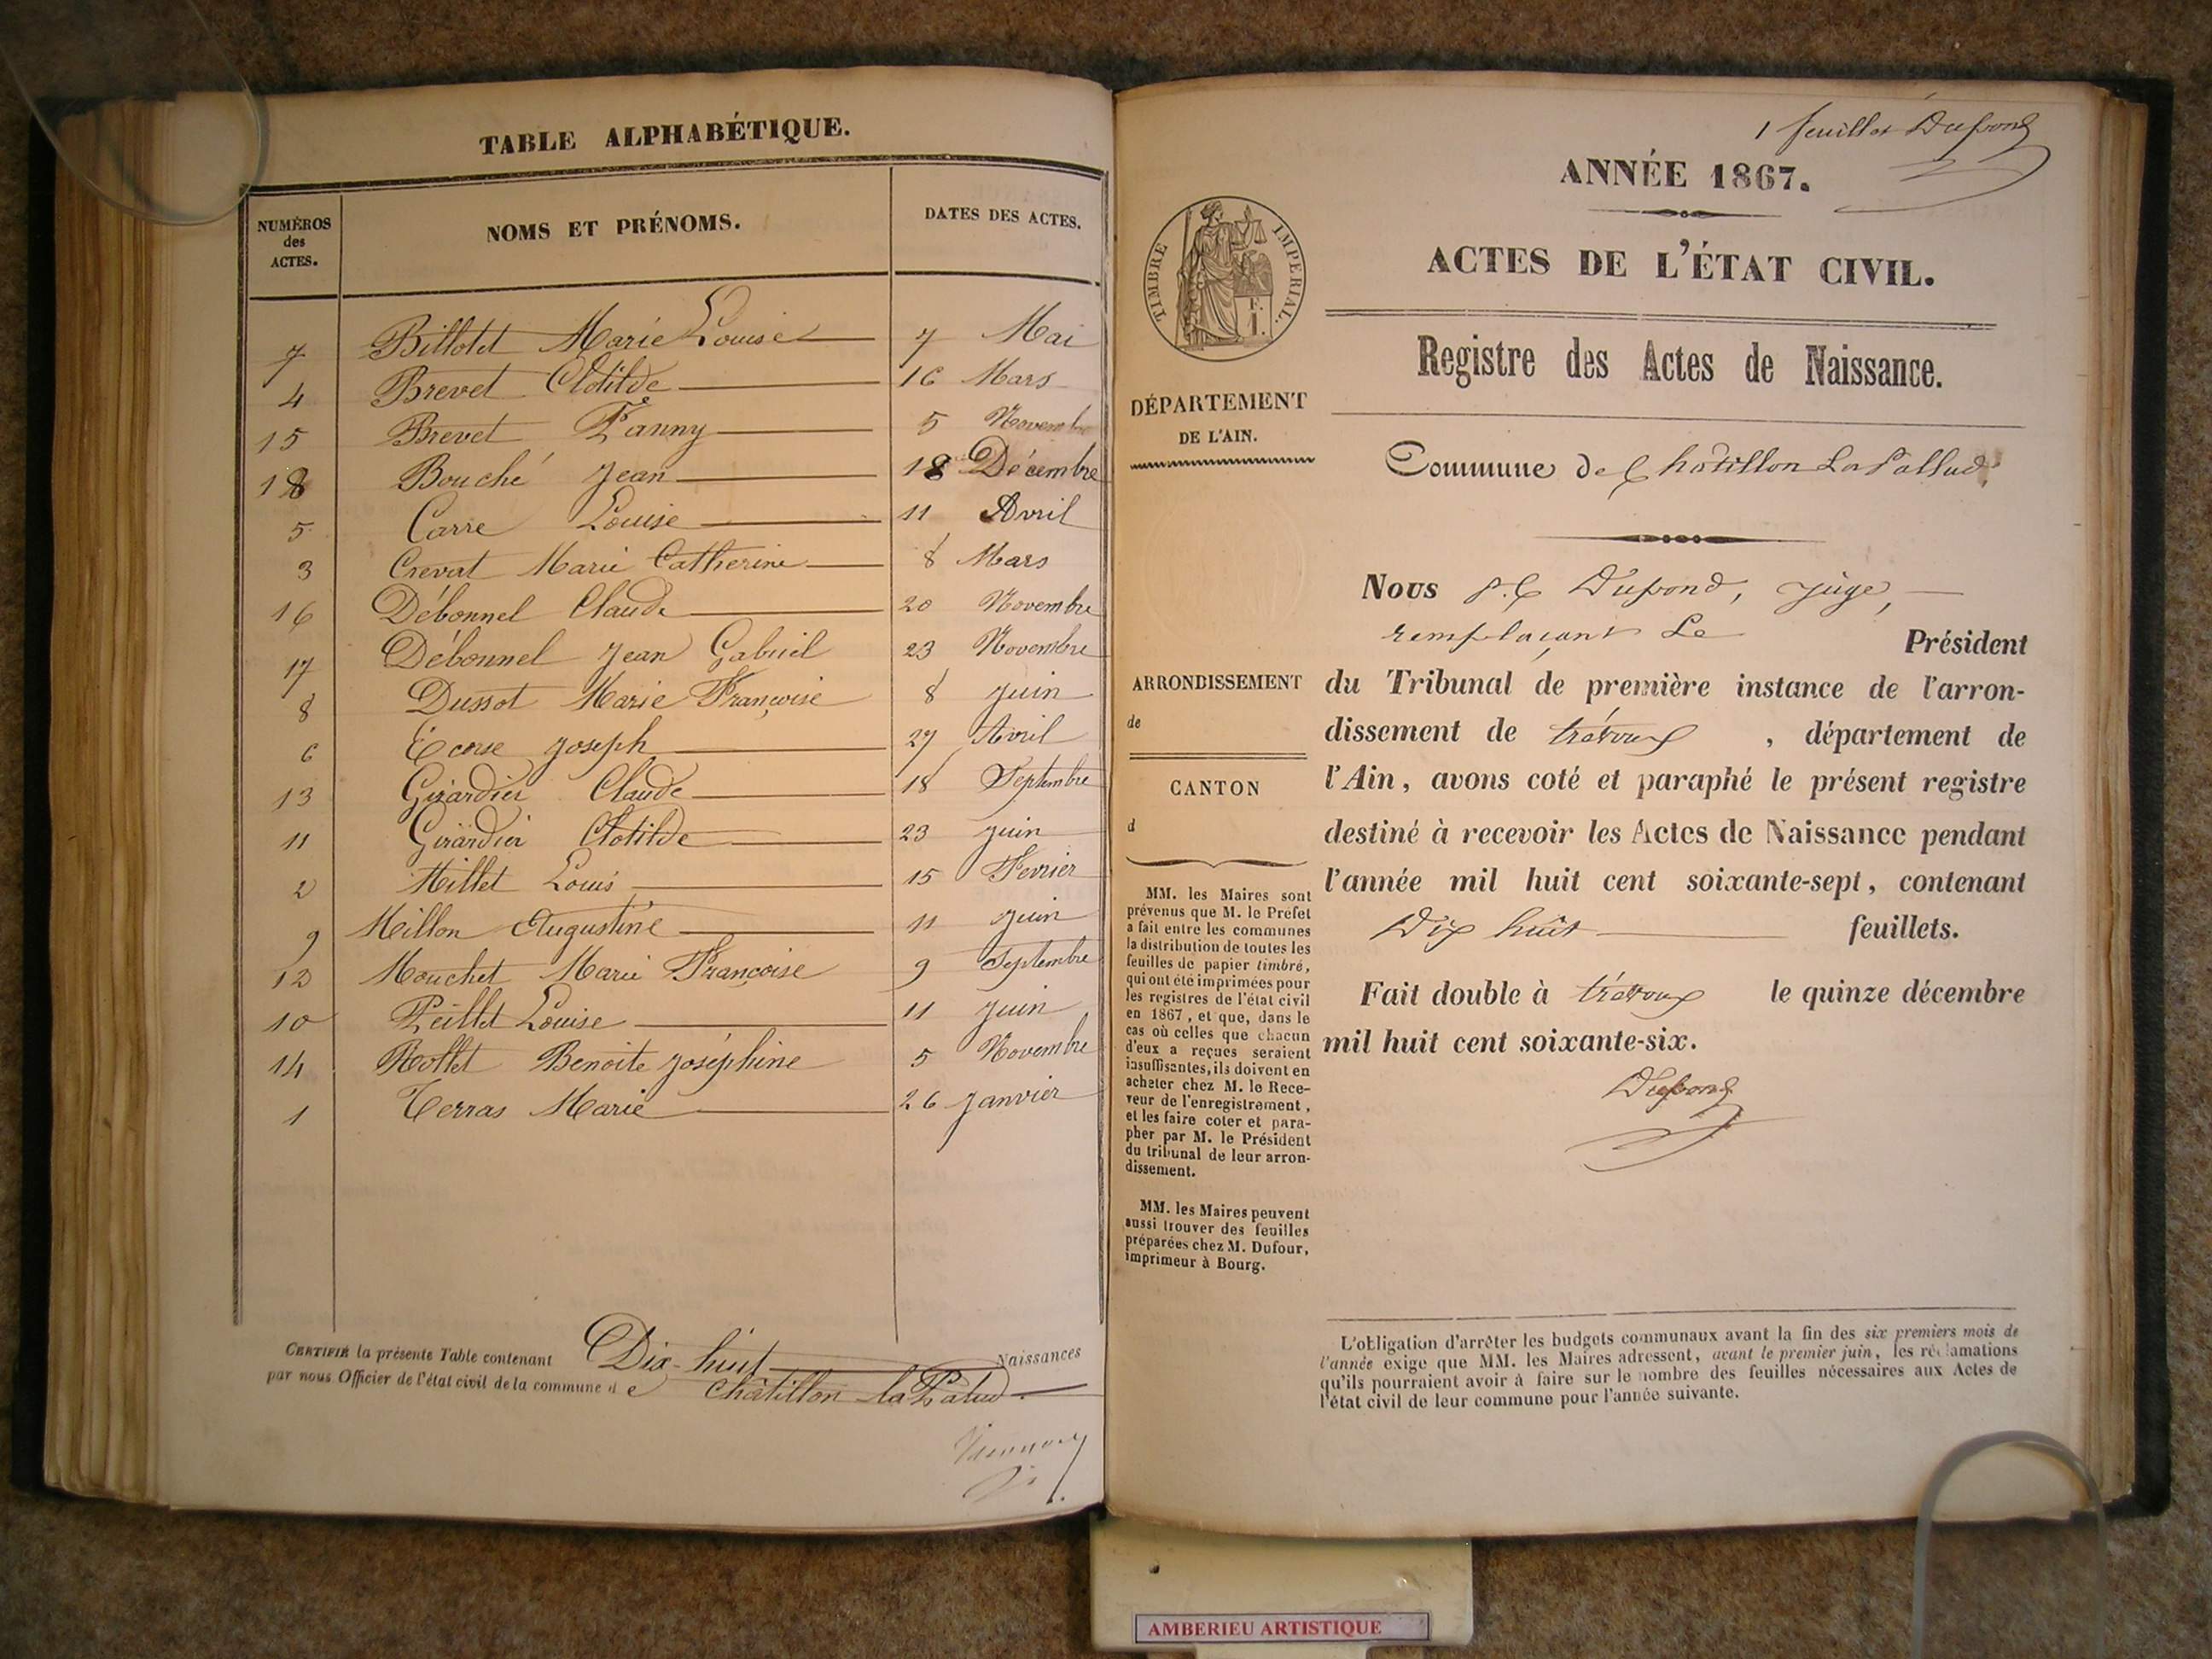 TABLE ALPHABÉTIQUE.
NUMÉROS des ACTES. NOMS ET PRÉNOMS. DATES DES ACTES.
7 Billotet Marie Louise 7 Mai
4 Brevet Clotilde 16 Mars
15 Brevet Fanny 5 Novembre
18 Bouché Jean 18 Décembre
5 Carre Louise 11 Avril
3 Crevat Marie Catherine 8 Mars
16 Débonnel Claude 20 Novembre
17 Débonnel Jean Gabriel 23 Novembre
8 Dussot Marie Françoise 8 Juin
6 Ecorse Joseph 27 Avril
13 Girardier Claude 18 Septembre
11 Girardier Clotilde 23 Juin
2 Millet Louis 15 Fevrier
9 Millon Augustine 11 Juin
12 Mouchet Marie Françoise 9 Septembre
10 Peillet Louise 11 Juin
14 Rollet Benoite Joséphine 5 Novembre
1 Terras Marie 26 Janvier
CERTIFIÉ la présente Table contenant Dix-huit Naissances
par nous Officier de l'état civil de la commune de Châtillon la Palud
1 feuillet Dupond
ANNÉE 1867.
ACTES DE L'ÉTAT CIVIL.
TIMBRE IMPERIAL.
F.
1.
Registre des Actes de Naissance.
DÉPARTEMENT
DE L'AIN.
Commune de Châtillon La Pallud
Nous Dupond, juge,
remplaçant Le Président
ARRONDISSEMENT
de
CANTON
d
du Tribunal de première instance de l'arron-
dissement de trévoux, département de
l'Ain, avons coté et paraphé le présent registre
destiné à recevoir les Actes de Naissance pendant
l'année mil huit cent soixante-sept, contenant
Dix huit feuillets.
Fait double à trévoux le quinze décembre
mil huit cent soixante-six.
Dupond
MM. les Maires sont
prévenus que M. le Préfet
a fait entre les communes
la distribution de toutes les
feuilles de papier timbré,
qui ont été imprimées pour
les registres de l'état civil
en 1867, et que, dans le
cas où celles que chacun
d'eux a reçues seraient
insuffisantes, ils doivent en
acheter chez M. le Rece-
veur de l'enregistrement,
et les faire coter et para-
pher par M. le Président
du tribunal de leur arron-
dissement.
MM. les Maires peuvent
aussi trouver des feuilles
préparées chez M. Dufour,
imprimeur à Bourg.
L'obligation d'arrêter les budgets communaux avant la fin des six premiers mois de
l'année exige que MM. les Maires adressent, avant le premier juin, les réclamations
qu'ils pourraient avoir à faire sur le nombre des feuilles nécessaires aux Actes de
l'état civil de leur commune pour l'année suivante.
AMBERIEU ARTISTIQUE